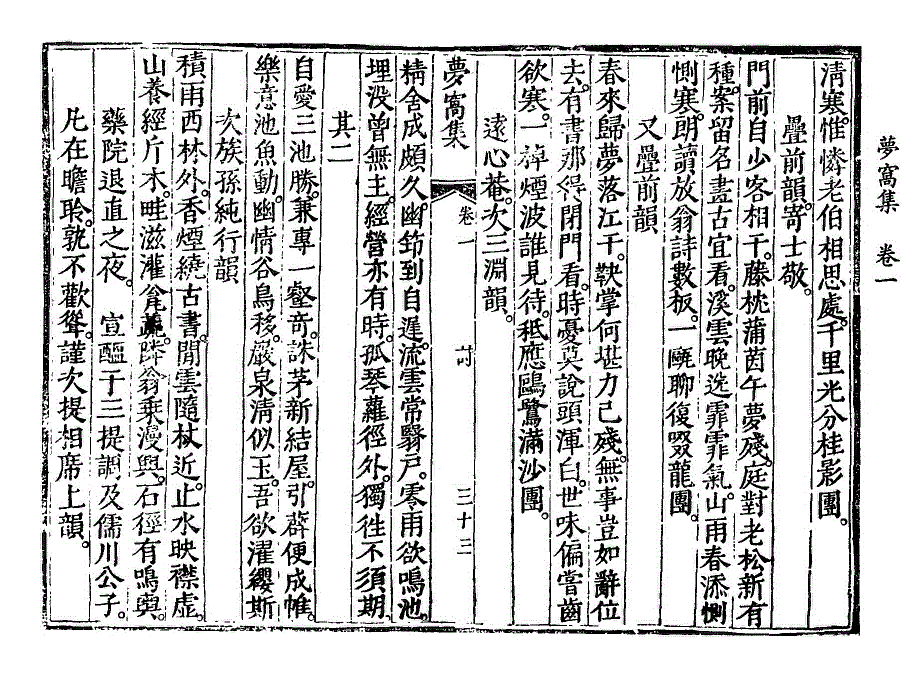 夢窩集　卷一
淸寒。惟憐老伯相思處。千里光分桂影團。
疊前韻。寄士敬。
門前自少客相干。藤枕蒲茵午夢殘。庭對老松新有
種。案留名畫古宜看。溪雲晚逃霏霏氣。山雨春添惻
惻寒。朗讀放翁詩數板。一甌聊復啜龍團。
又疊前韻
春來歸夢落江干。鞅掌何堪力已殘。無事豈如辭位
去。有書那得閉門看。時憂莫說頭渾白。世味偏嘗齒
欲寒。一棹煙波誰見待。秪應鷗鷺滿沙團。
遠心菴。次三淵韻。
夢窩集　卷一　詩　三十三
精舍成頗久。幽筇到自遲。流雲常翳戶。零雨欲鳴池。
埋沒曾無主。經營亦有時。孤琴蘿徑外。獨徃不須期。
其二
自愛三池勝。兼專一壑奇。誅茅新結屋。引薜便成帷。
樂意池魚動。幽情谷鳥移。巖泉淸似玉。吾欲濯纓斯
次族孫純行韻
積雨西林外。香煙繞古書。閒雲隨杖近。止水映襟虛。
山養經斤木。畦滋灌瓮蔬。隣翁乘漫興。石徑有鳴輿
藥院退直之夜。宣醞于三提調及儒川公子。
凡在瞻聆。孰不歡聳。謹次提相席上韻。